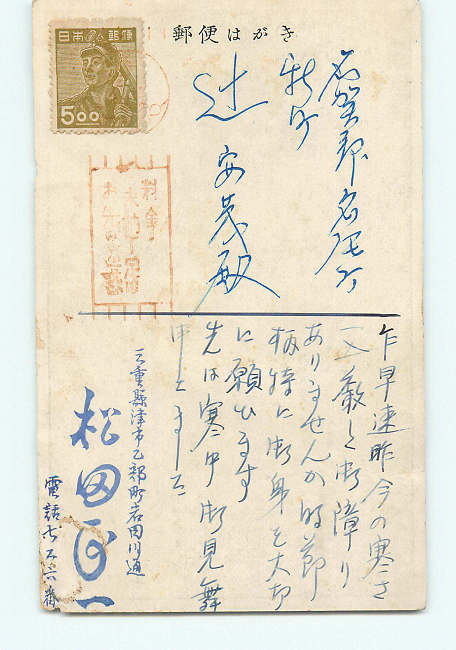 郵便はがき
日本郵便
5.00
名賀郡名張町
新町
辻 安茂殿
乍早速昨今の寒さ
厳しく御障り
ありませんか時節
柄特に御身を大切
に願ひます
先は寒中御見舞
申上ます
三重縣津市乙部町岩田川通
松田正一
電話七五六番
料金